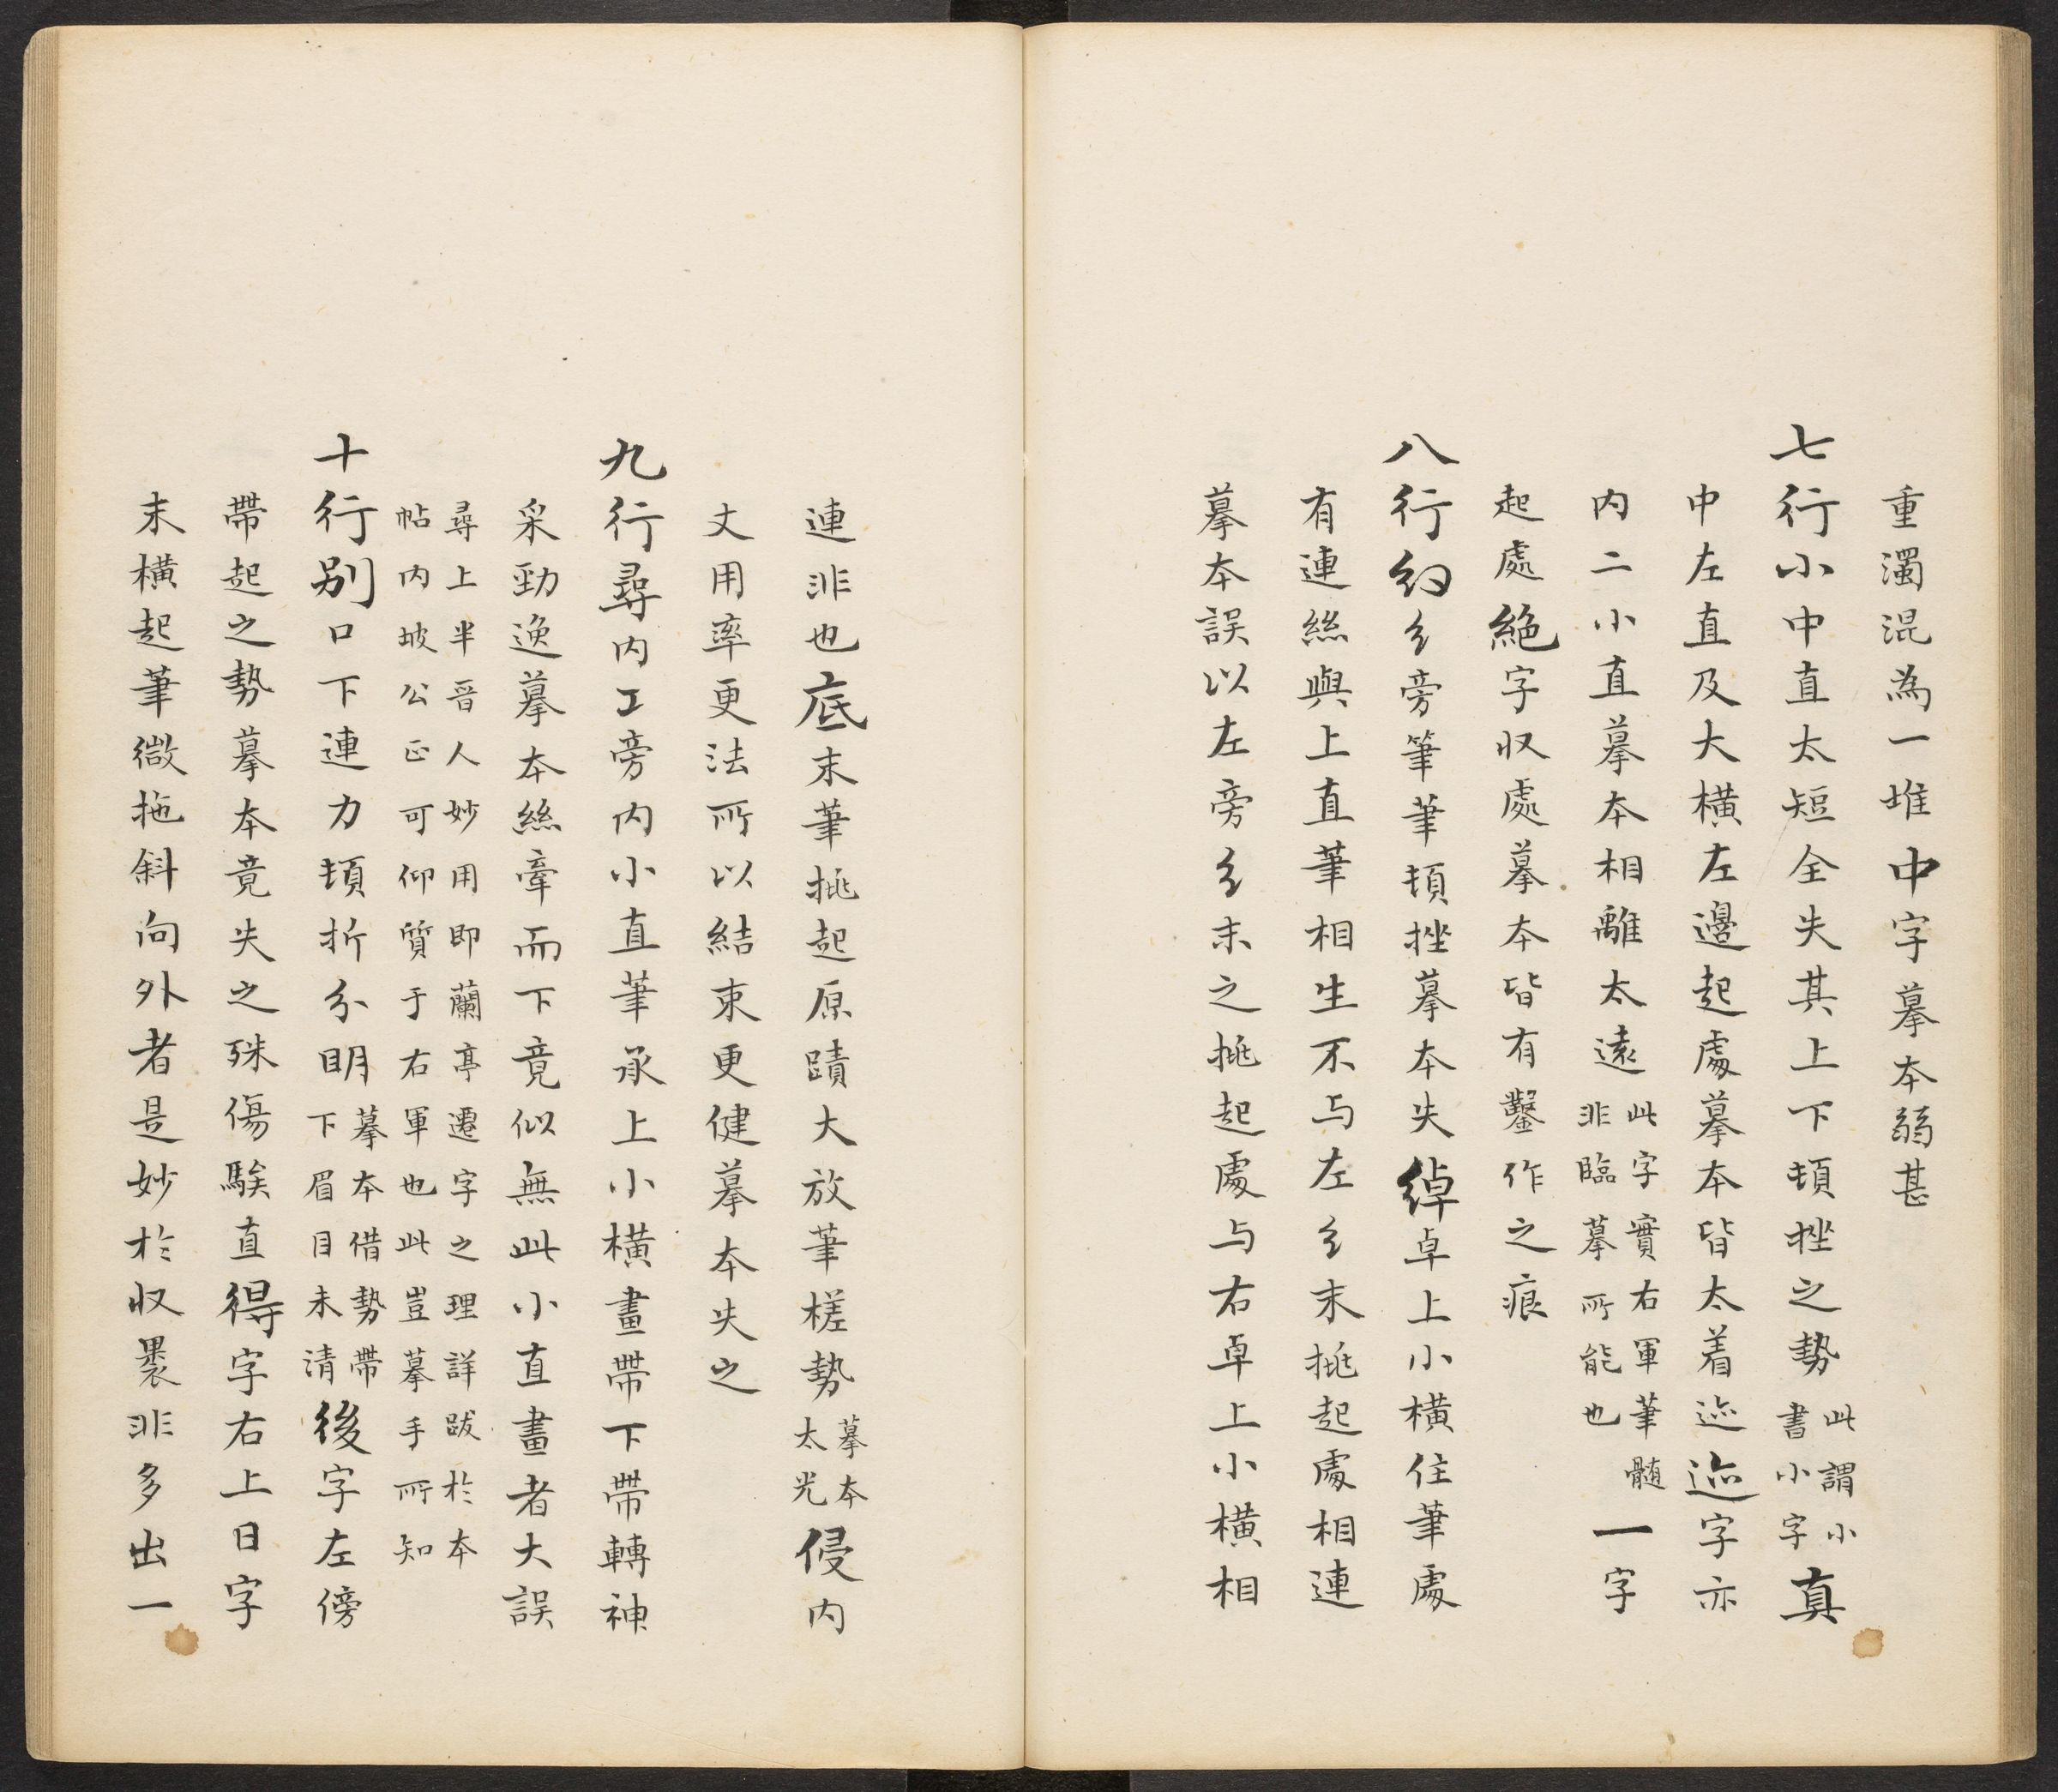 重濁混為一堆中字摹本弱甚
七行小中直太短全失其上下頓挫之勢此謂小書小字真
中左直及大橫左邊起處摹本皆太着迹迹字亦
内二小直摹本相離太遠此字實右軍筆髄非臨摹所能也一字
起處絶字収處摹本皆有鑿作之痕
八行約糹旁筆筆頓挫摹本失綽卓上小橫住筆處
有連絲與上直筆相生不与左糹末挑起處相連
摹本誤以左旁糹末之挑起處与右卓上小橫相
連非也底末筆挑起原蹟大放筆槎勢摹本太光侵内
丈用率更法所以結束更健摹本失之
九行尋内工旁内小直筆承上小橫畫帶下帶轉神
采勁逸摹本絲牽而下竟似無此小直畫者大誤
尋上半晋人妙用即蘭亭遷字之理詳跋於本
帖内坡公正可仰質于右軍也此豈摹手所知
十行别口下連力頓折分明摹本借勢帶下眉目未清後字左傍
帶起之勢摹本竟失之殊傷騃直得字右上日字
末橫起筆微拖斜向外者是妙於収裹非多出一